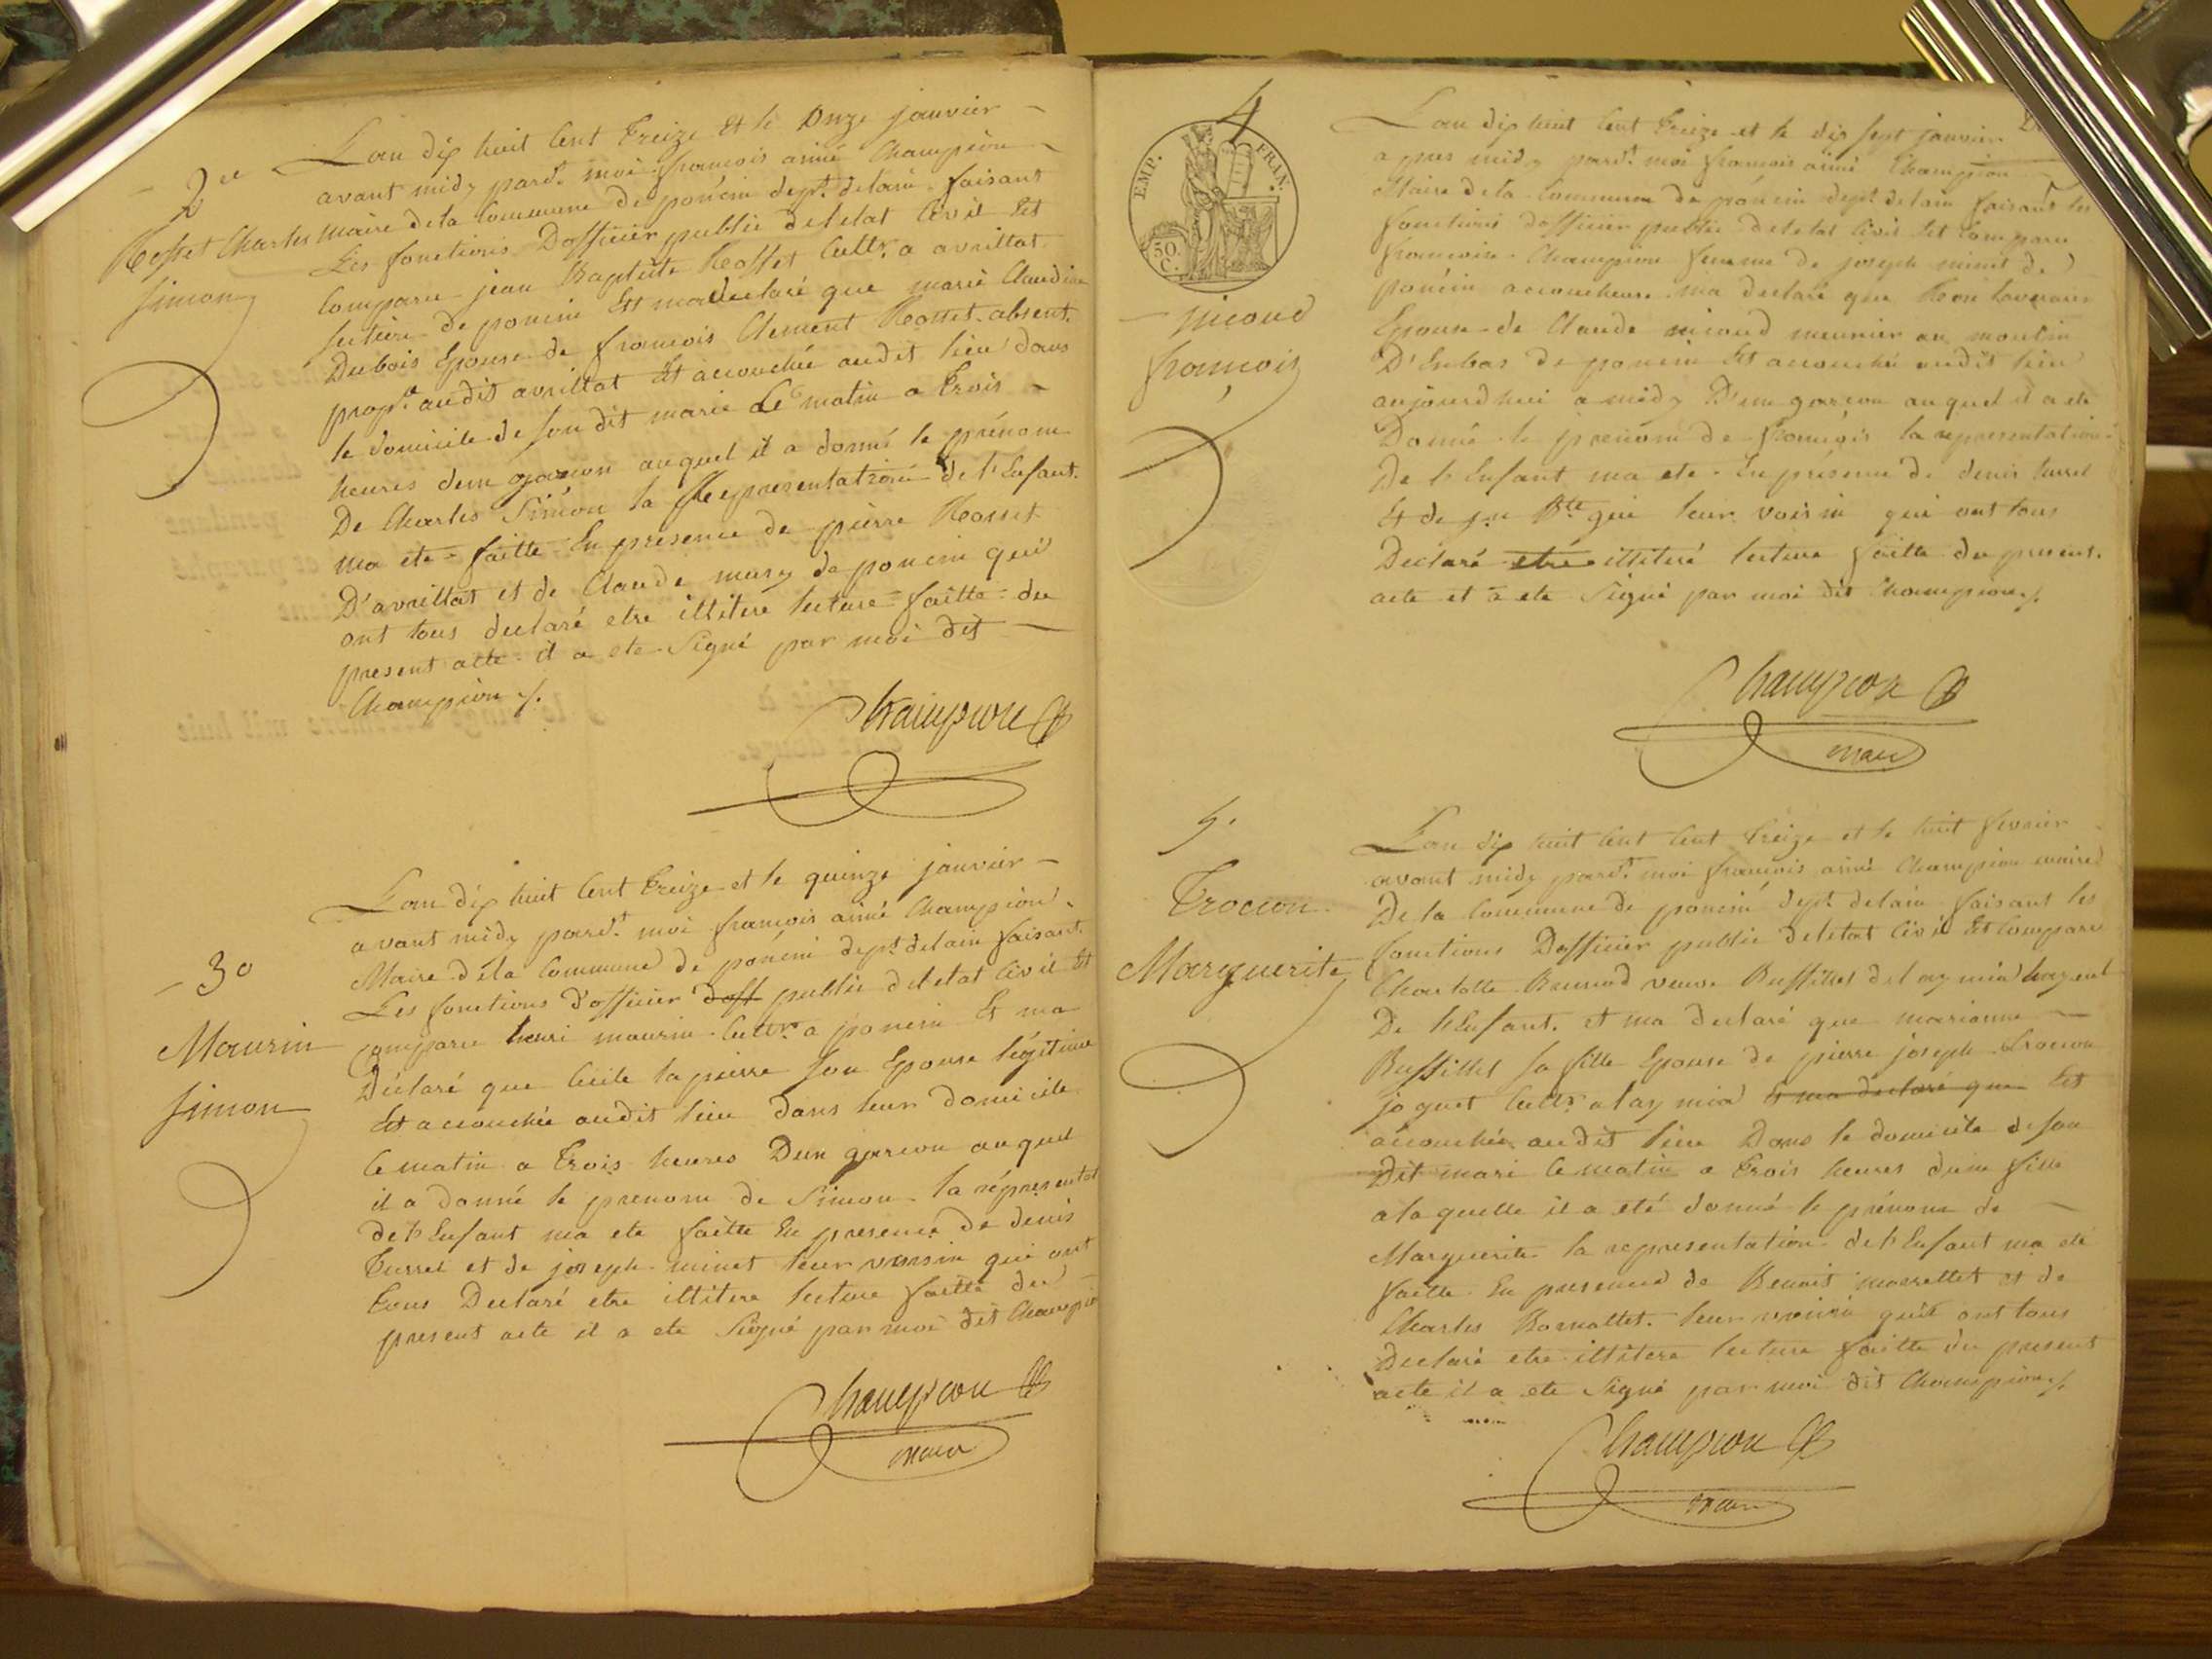 2e
Rosset Charles
Simon
L'an dix huit cent treize et le onze janvier
avant midy pardt moi françois aimé Champion
Maire de la Commune de poncin dept delain faisant
Les fonctions D'officier public deletat Civil Est
Comparu jean Baptiste Rosset Cultr a avrillat
de poncin Est ma declaré que marie Claudine
Dubois Epouse de françois Clement Rosset absent
propre audit avrillat Est accouchée audit lieu dans
le domicile de son dit marie Le matin a trois
heures dun garcon auquel il a donné le prénom
De Charles Simon la Representation de l'Enfant
ma ete faitte En presence de pierre Rosset
D'avrillat et de Claude mury de poncin qui
ont tous declaré etre illitere lecture faitte du
present acte il a ete Signé par moi dit
Champion
Champion
3e
Maurin
Simon
L'an dix huit Cent treize et le quinze janvier
avant midy pardt moi françois aimé Champion
Maire dela Commune de poncin dept delain faisant
Les fonctions d'officier doff public deletat Civil Est
Comparu henri maurin Cultr a poncin Et ma
Déclaré que Cecile la pierre son Epouse légitime
Est accouchée audit lieu dans leur domicile
Le matin a trois heures Dun garcon auquel
il a donné le prenom de Simon la représentat
de l'Enfant ma ete faitte En presence de denis
turrel et de joseph minet leur voisin qui ont
tous Declaré etre illitere lecture faitte du
present acte il a ete Signé par moi dit Champion
Champion
maire
4
EMP. FRAN.
50 C.
nicoud
françois
L'an dix huit Cent treize et le dix sept janvier
apres midy pardt moi françois aimé Champion
Maire dela Commune de poncin dept delain faisant les
fonctions d'officier public deletat Civil Est Comparu
françoise Champion femme de joseph minet de
poncin accoucheuse ma declaré que
Epouse de Claude nicoud meunier au moulin
D'Enbas de poncin Est accouchée audit lieu
aujourd'hui a midy D'un garcon auquel il a ete
Donné le prénom de françois la representation
De l'Enfant ma ete En présence de denis turrel
Et de jn Bte gui leur voisin qui ont tous
Declaré etre illiteré lecture faitte du present
acte et a ete Signé par moi dit Champion
Champion
maire
5.
Trocon
Marguerite
L'an dix huit cent cent treize et le huit fevrier
avant midy pardt moi françois aimé Champion maire
De la Commune de poncin dept delain faisant les
fonctions D'officier public deletat Civil Est Comparu
Charlotte veuve Bussillet
De l'Enfant et ma declaré que marianne
Bussillet sa fille Epouse de pierre joseph trocon
joguet Cultr a et ma déclaré que Est
accouchée audit lieu Dans le domicile de son
Dit mari Le matin a trois heures dune fille
a laquelle il a eté donné le prénom de
Marguerite la representation de l'Enfant ma eté
faitte En presence de Benoit et de
Charles leur voisin qui ont tous
Declaré etre illitere lecture faitte du present
acte il a ete Signé par moi dit Champion
Champion
maire